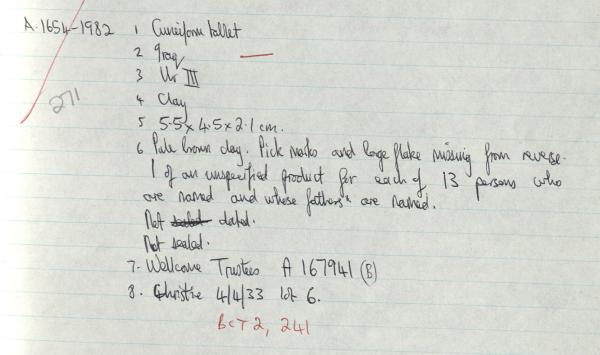 A.1654-1982 1 Cuneiform tablet
2 Iraq
3 Ur III
271
4 Clay
5 5.5 x 4.5 x 2.1 cm.
6 Pale brown clay. Pick marks and large flake missing from reverse.
1 of an unspecified product for each of 13 persons who
are named and whose fathers are named.
Not sealed dated.
Not sealed.
7. Wellcome Trustees A 167941 (B)
8. Christie 4/4/33 lot 6.
BCT 2, 241